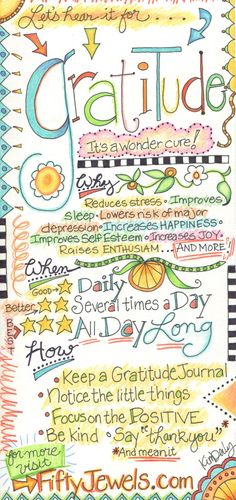 Let's hear it for...
Gratitude
It's a wonder cure!
Why
Reduces stress • Improves
sleep • Lowers risk of major
depression • Increases HAPPINESS •
Improves Self Esteem • Increases JOY
RAISES ENTHUSIAM... AND MORE
When
Good Daily
Better Several times a Day
All Day Long
How
• Keep a Gratitude Journal
Notice the little things
Focus on the POSITIVE
Be kind • Say "thank you"
• And mean it
for more
visit
FiftyJewels.com